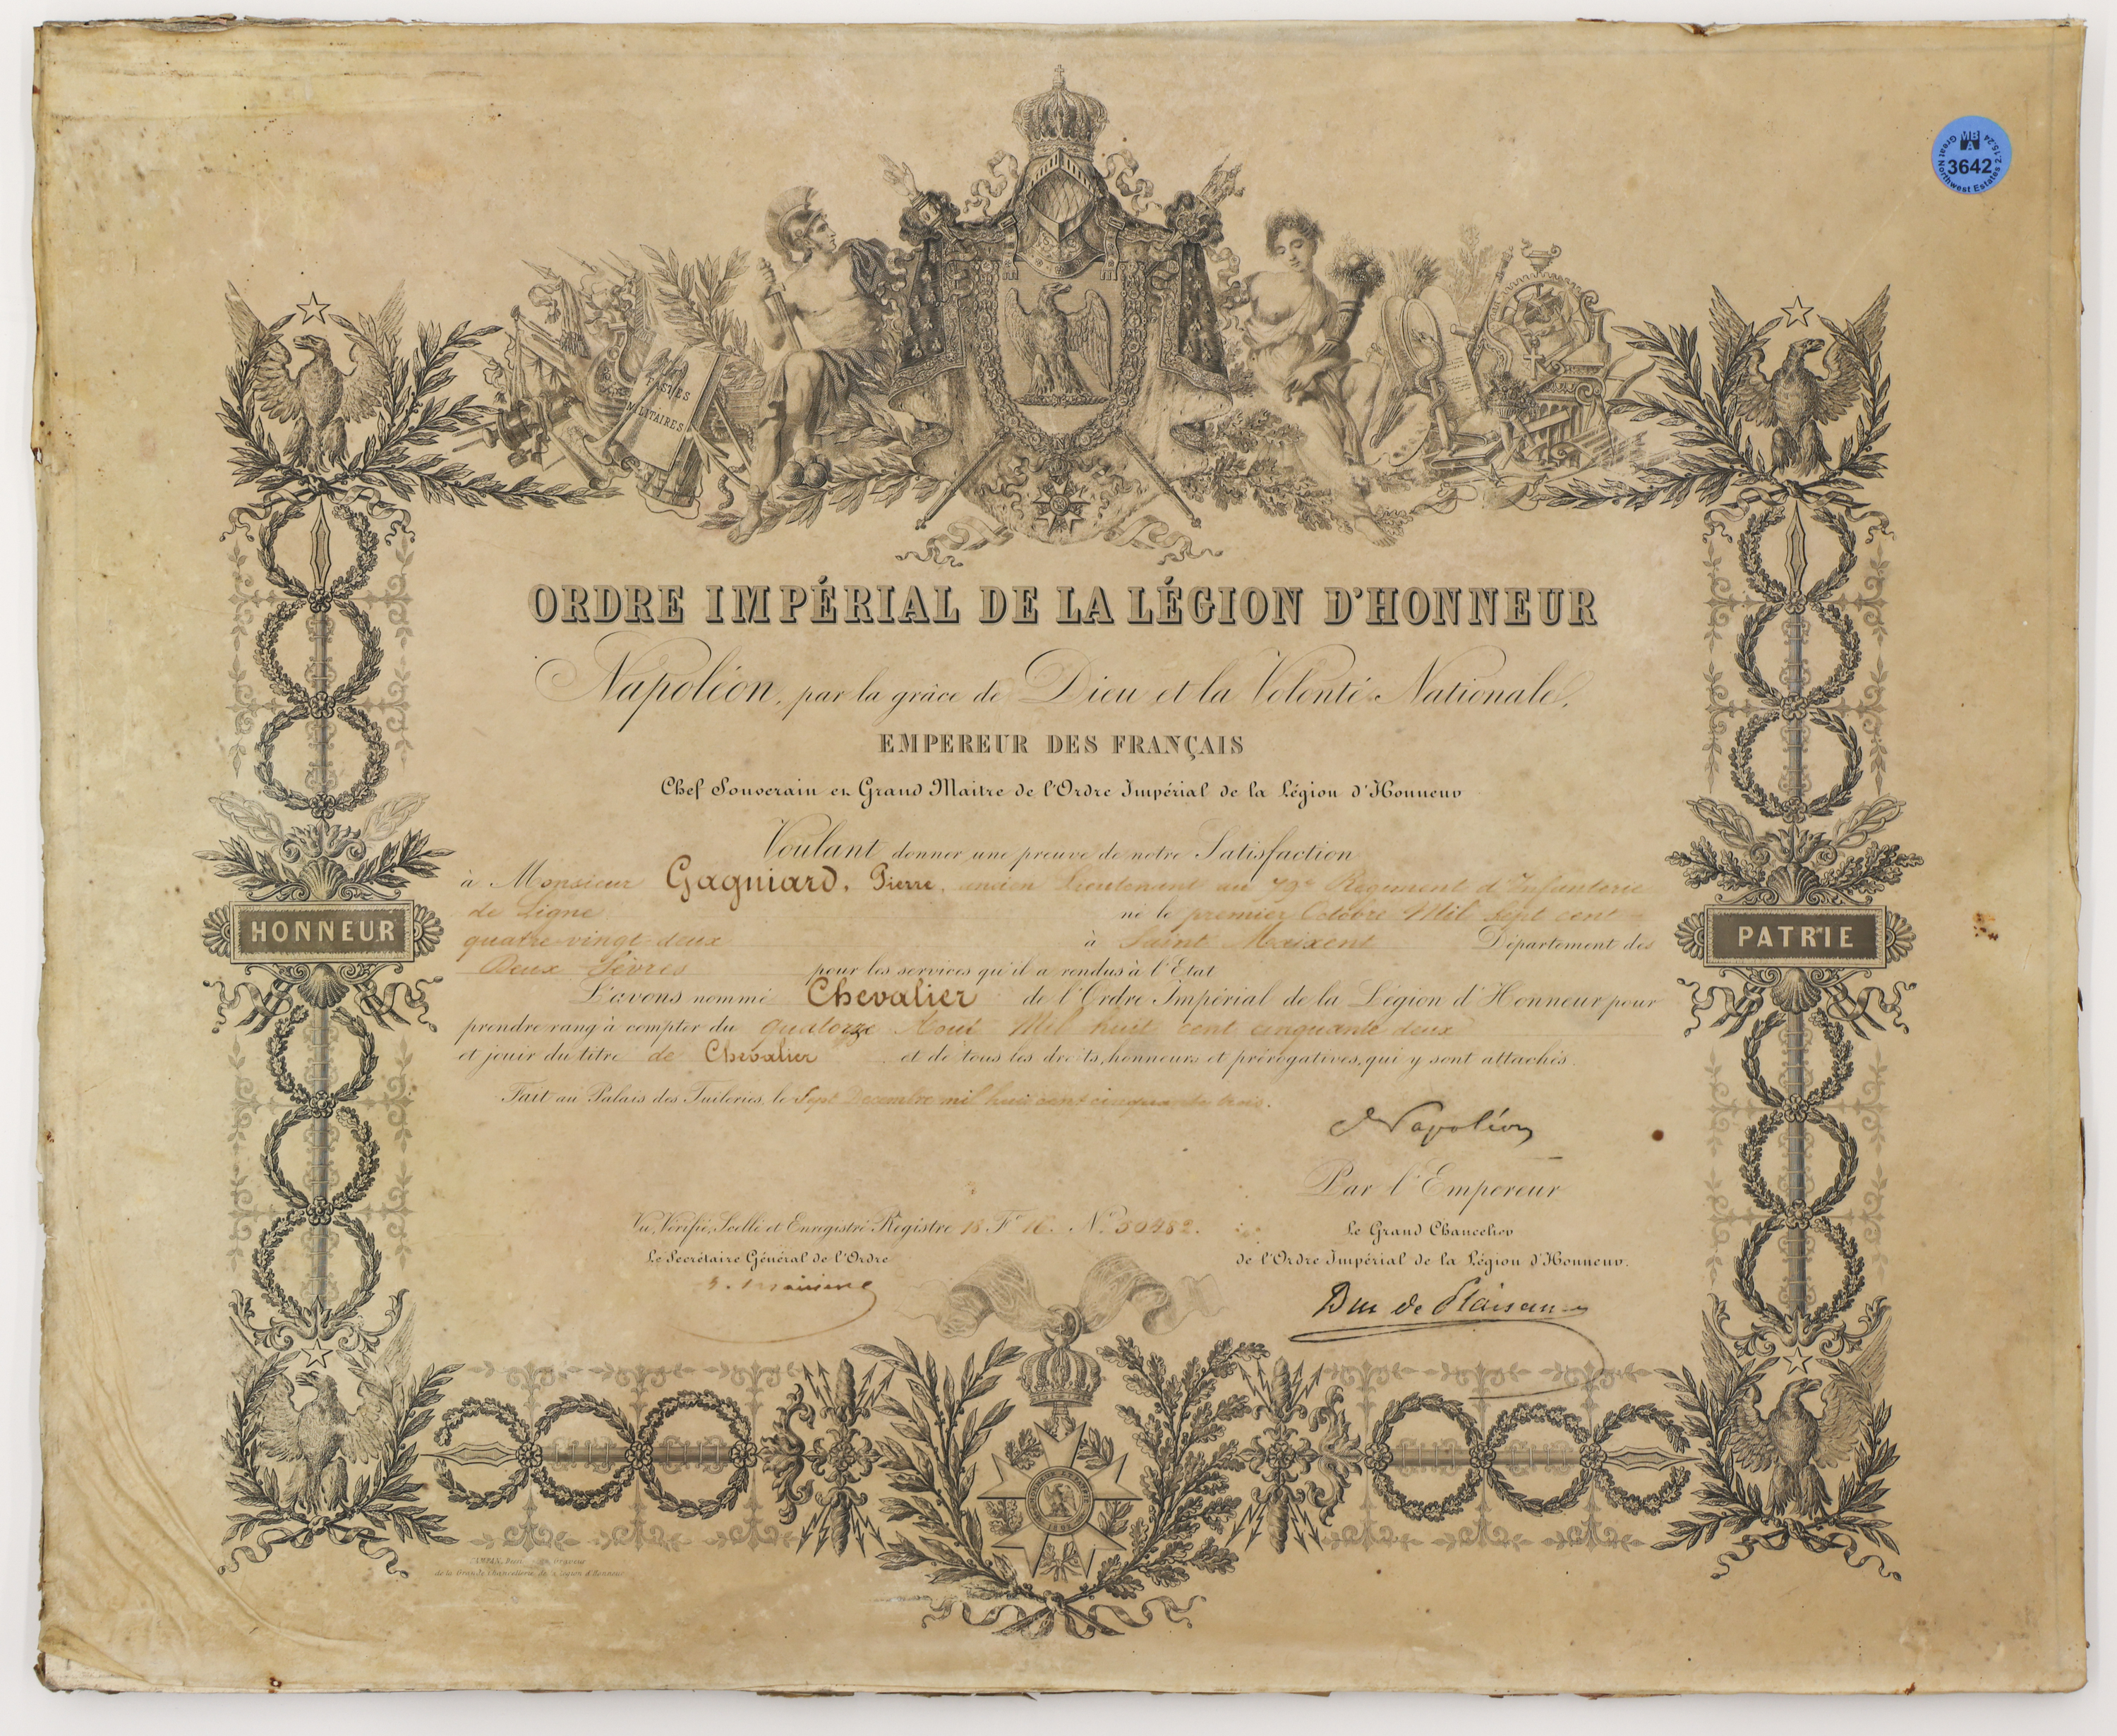 MBA
3642
Great Northwest Estates 2.15.24
FASTES
MILITAIRES
ORDRE IMPÉRIAL DE LA LÉGION D'HONNEUR
Napoléon, par la grâce de Dieu et la Volonté Nationale,
EMPEREUR DES FRANÇAIS
Chef Souverain et Grand Maitre de l'Ordre Impérial de la Légion d'Honneur
Voulant donner une preuve de notre Satisfaction
à Monsieur Gagniard, Pierre, ancien Lieutenant au 79e Régiment d'Infanterie
de Ligne né le premier Octobre Mil Sept cent
quatre-vingt-deux à Saint Maixent Département des
Deux Sèvres pour les services qu'il a rendus à l'Etat
L'avons nommé Chevalier de l'Ordre Impérial de la Légion d'Honneur pour
prendre rang à compter du quatorze Aout Mil huit cent cinquante deux
et jouir du titre de Chevalier et de tous les droits, honneurs et prérogatives, qui y sont attachés.
Fait au Palais des Tuileries, le Sept Decembre mil huit cent cinquante trois.
HONNEUR
PATRIE
Napoléon
Par l'Empereur
Vu, Vérifié, Scellé et Enregistré Régistre 18 Fo 76. No 50482.
Le Grand Chancelier
Le Secrétaire Général de l'Ordre
de l'Ordre Impérial de la Légion d'Honneur.
Duc de Plaisance
de la Grande Chancellerie de la Légion d'Honneur